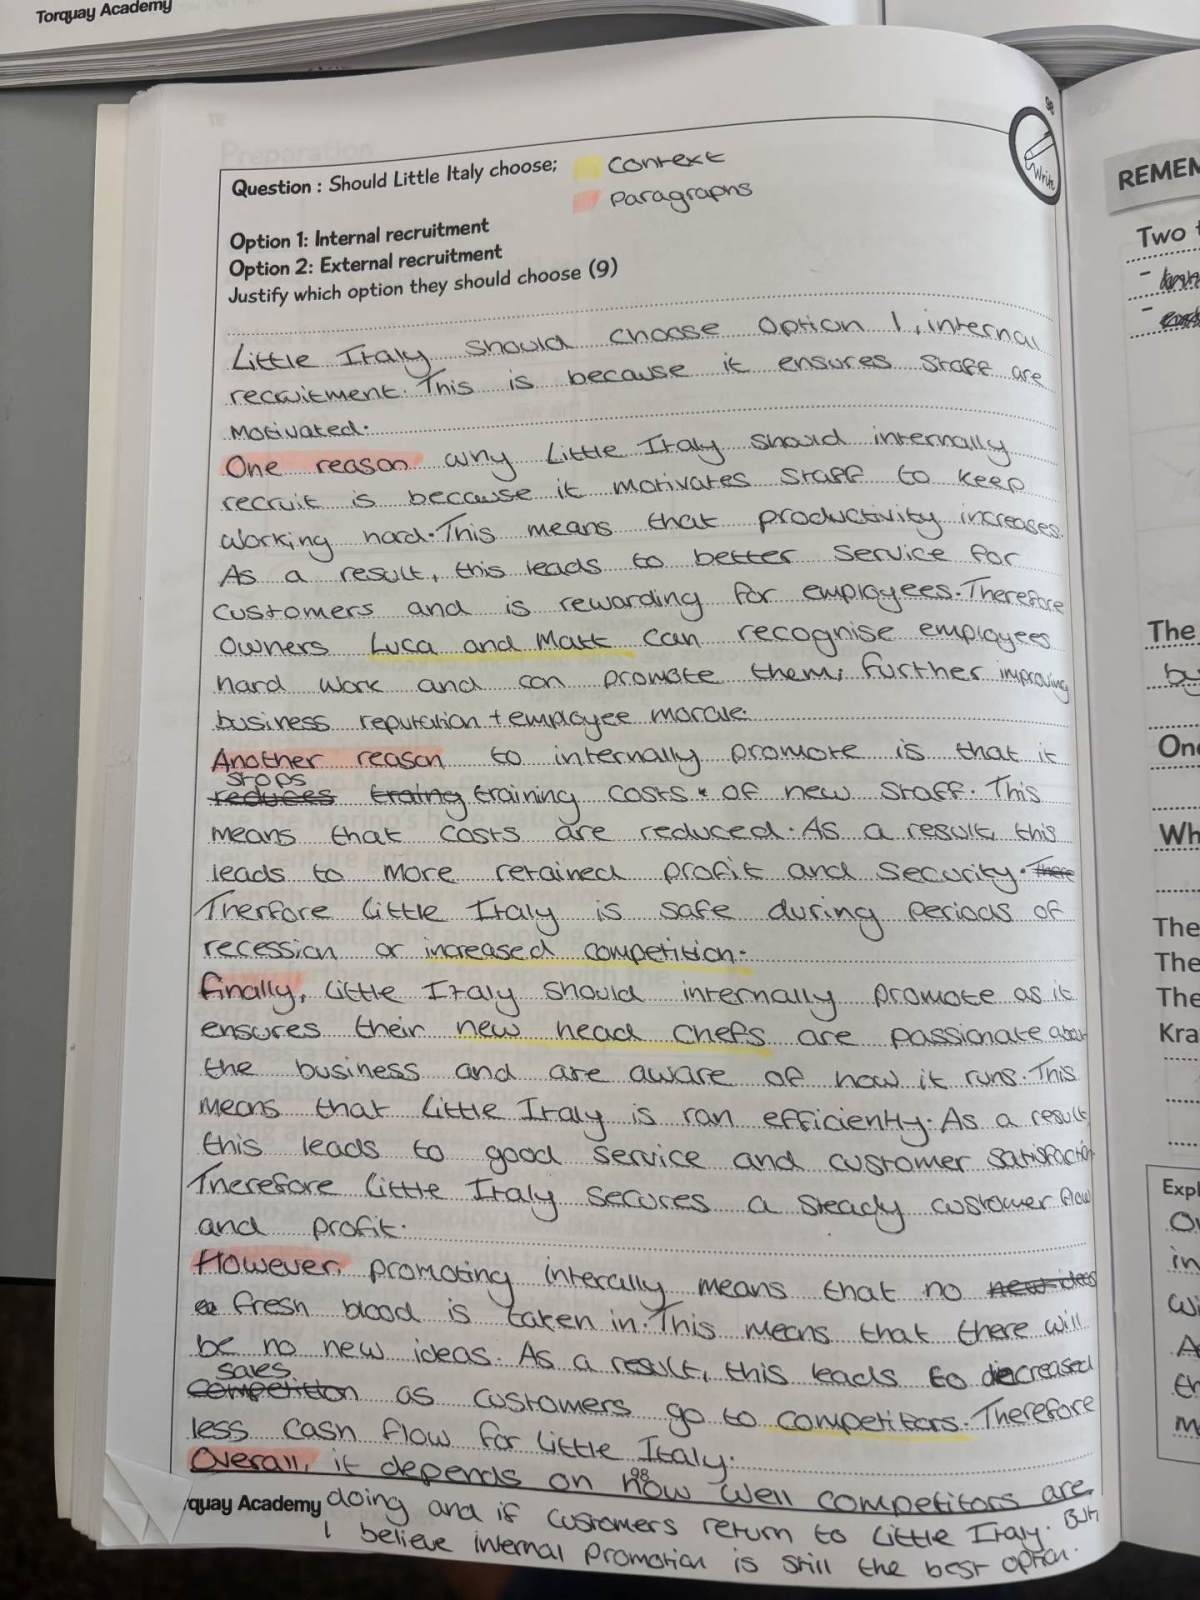 Torquay Academy
98
Write
Question : Should Little Italy choose;
Context
Paragraphs
Option 1: Internal recruitment
Option 2: External recruitment
Justify which option they should choose (9)
Little Italy should choose Option 1, internal
recruitment. This is because it ensures staff are
motivated.
One reason why Little Italy should internally
recruit is because it motivates staff to keep
working hard. This means that productivity increases.
As a result, this leads to better service for
customers and is rewarding for employees. Therefore
owners Luca and Matt can recognise employees
hard work and can promote them, further improving
business reputation + employee morale.
Another reason to internally promote is that it
stops
reduces traing training costs of new staff. This
means that costs are reduced. As a result, this
leads to more retained profit and security. There
Therfore Little Italy is safe during periods of
recession or increased competition.
Finally, Little Italy should internally promote as it
ensures their new head chefs are passionate about
the business and are aware of how it runs. This
means that Little Italy is ran efficiently. As a result
this leads to good service and customer satisfaction
Therefore Little Italy secures a steady customer flow
and profit.
However, promoting interally means that no new ideas
fresh blood is taken in. This means that there will
be no new ideas. As a result, this leads to decreased
sales
competition as customers go to competitors. Therefore
less cash flow for Little Italy.
Overall, it depends on how well competitors are
98
quay Academy
doing and if customers return to Little Italy. But
I believe internal promotion is still the best option.
REMEM
Two
The
by
On
Wh
The
The
The
Kra
Expl
in
th